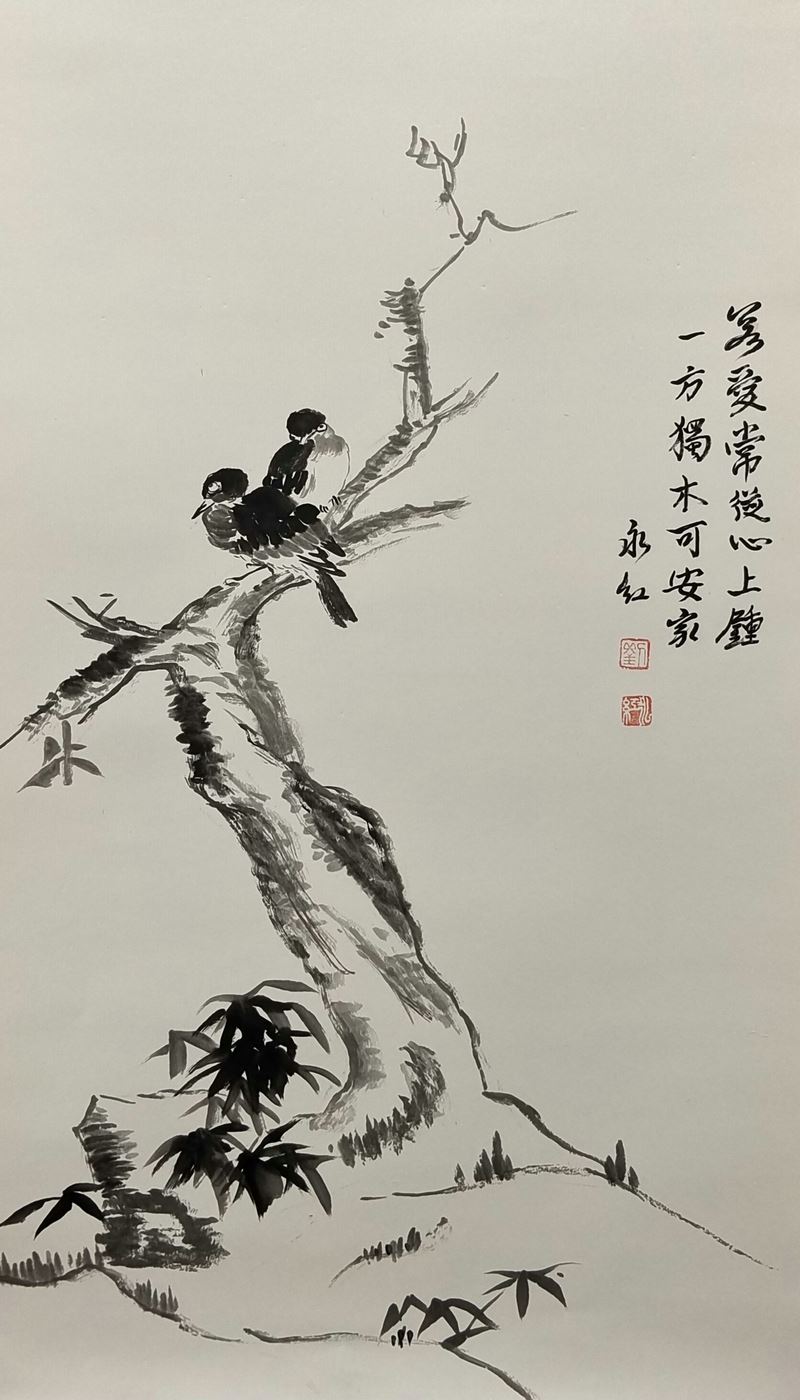 若愛常從心上鍾
一方獨木可安家
永紅